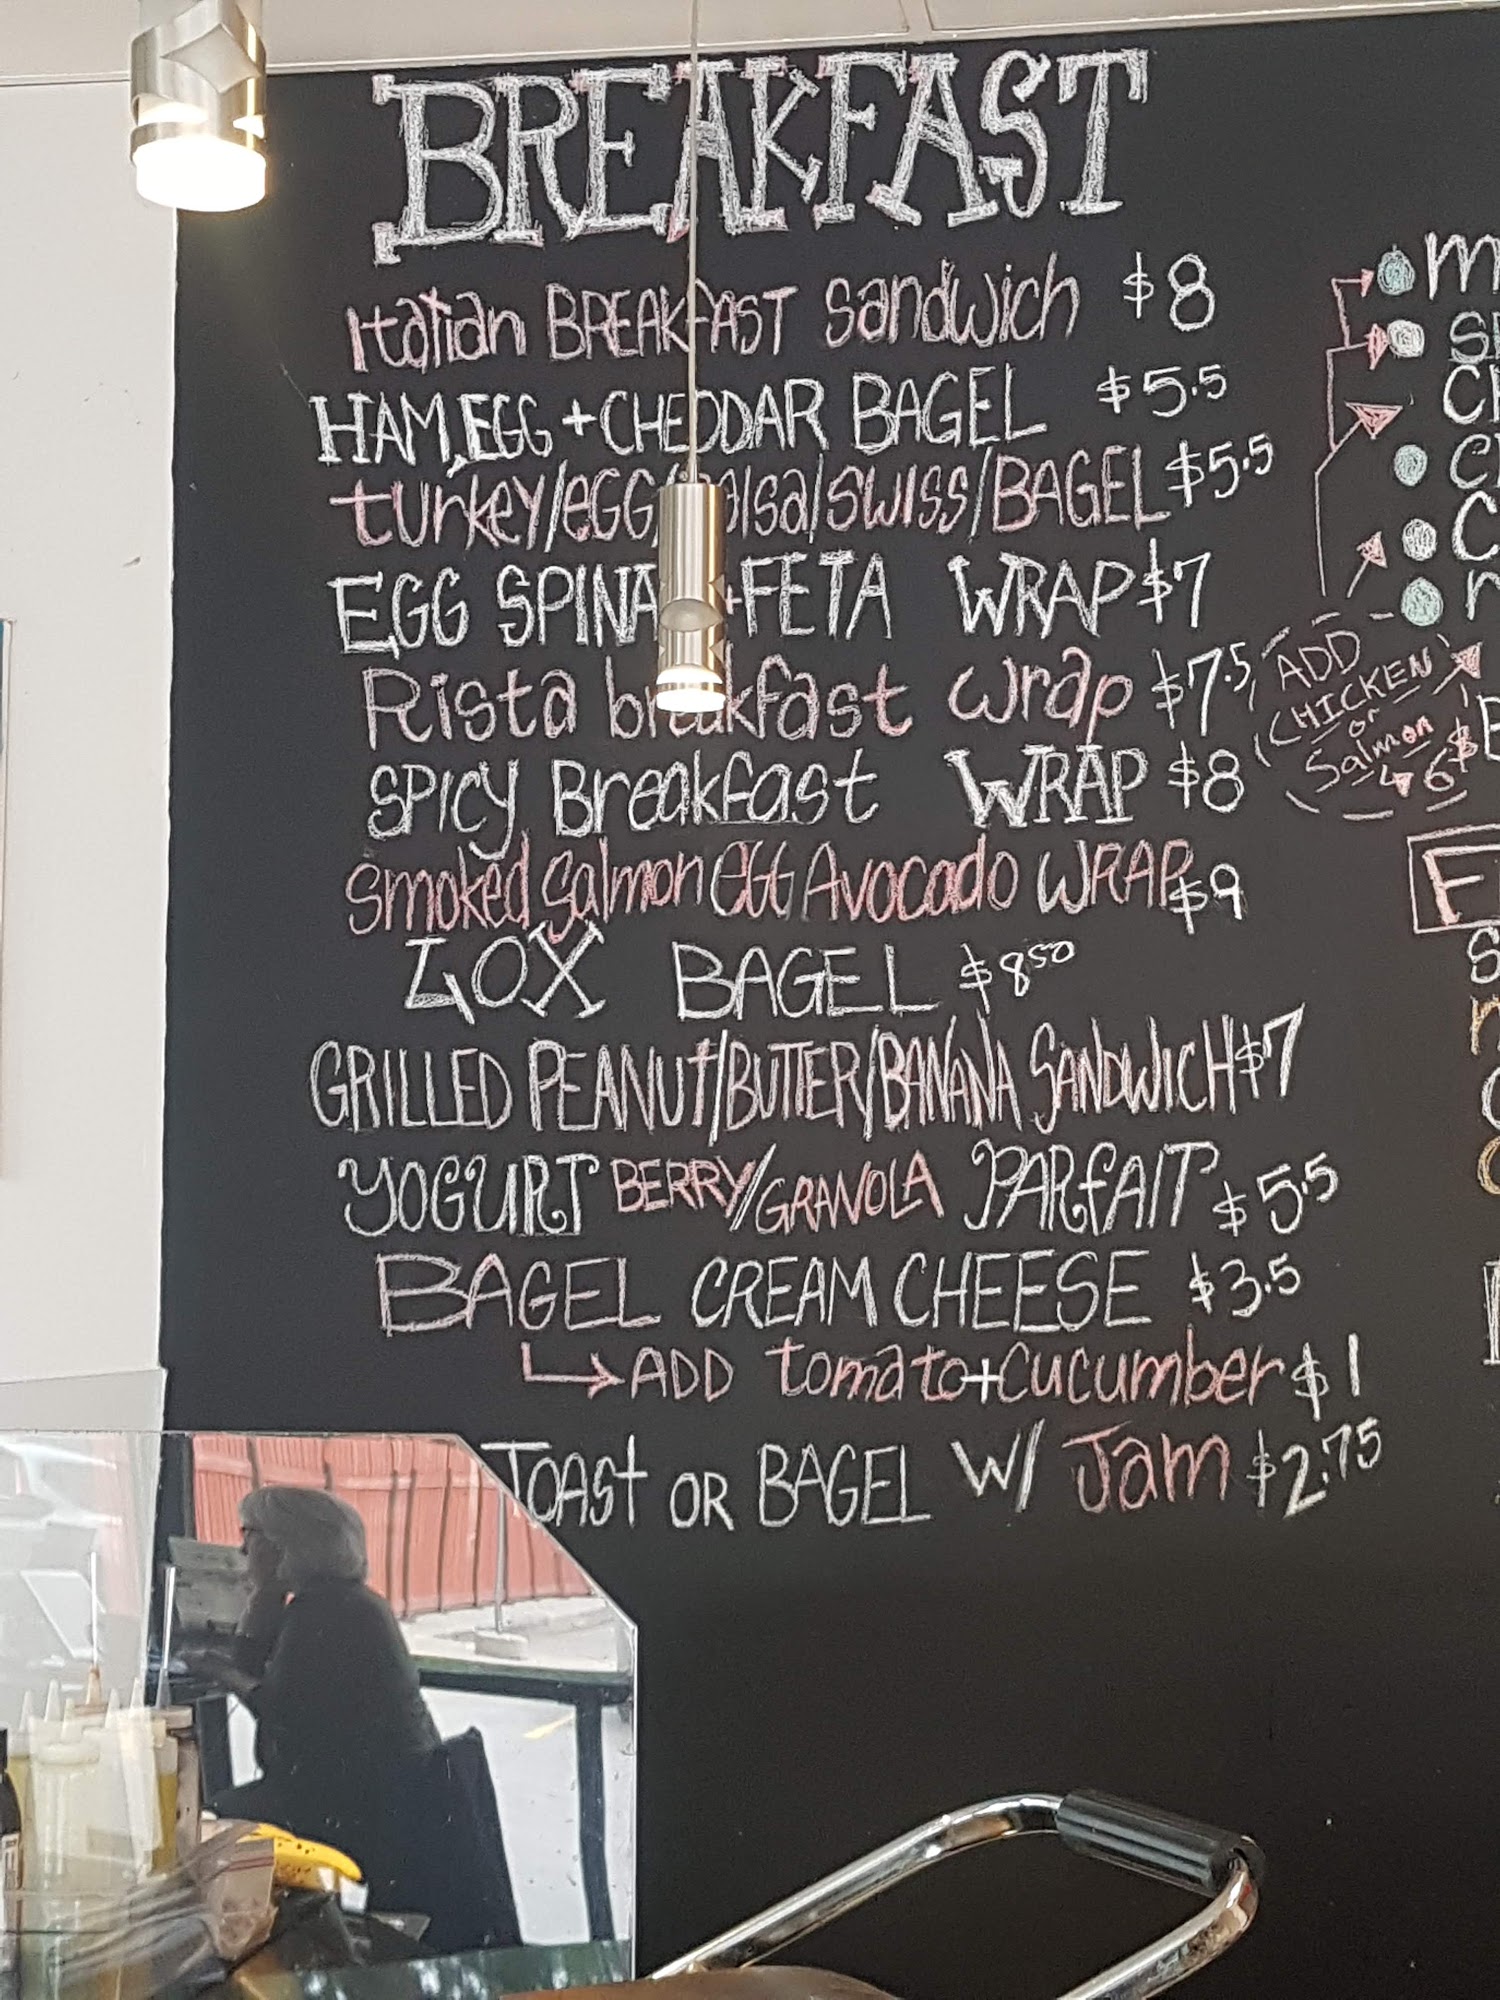 BREAKFAST
Italian BREAKFAST sandwich $8
HAM, EGG + CHEDDAR BAGEL $5.5
turkey/eGG/salsa/swiss/BAGEL $5.5
EGG + FETA WRAP $7
Rista breakfast wrap $7.5
SPICY Breakfast WRAP $8
smoked salmon eGG Avocado WRAP $9
LOX BAGEL $8.50
GRILLED PEANUt/BUTTER/BANANA SANDWICH $7
YOGURT BERRY/GRANOLA PARfAIT $5.5
BAGEL CREAM CHEESE $3.5
ADD tomato+cucumber $1
TOASt OR BAGEL W/ Jam $2.75
ADD
CHICKEN
or
Salmon
6$